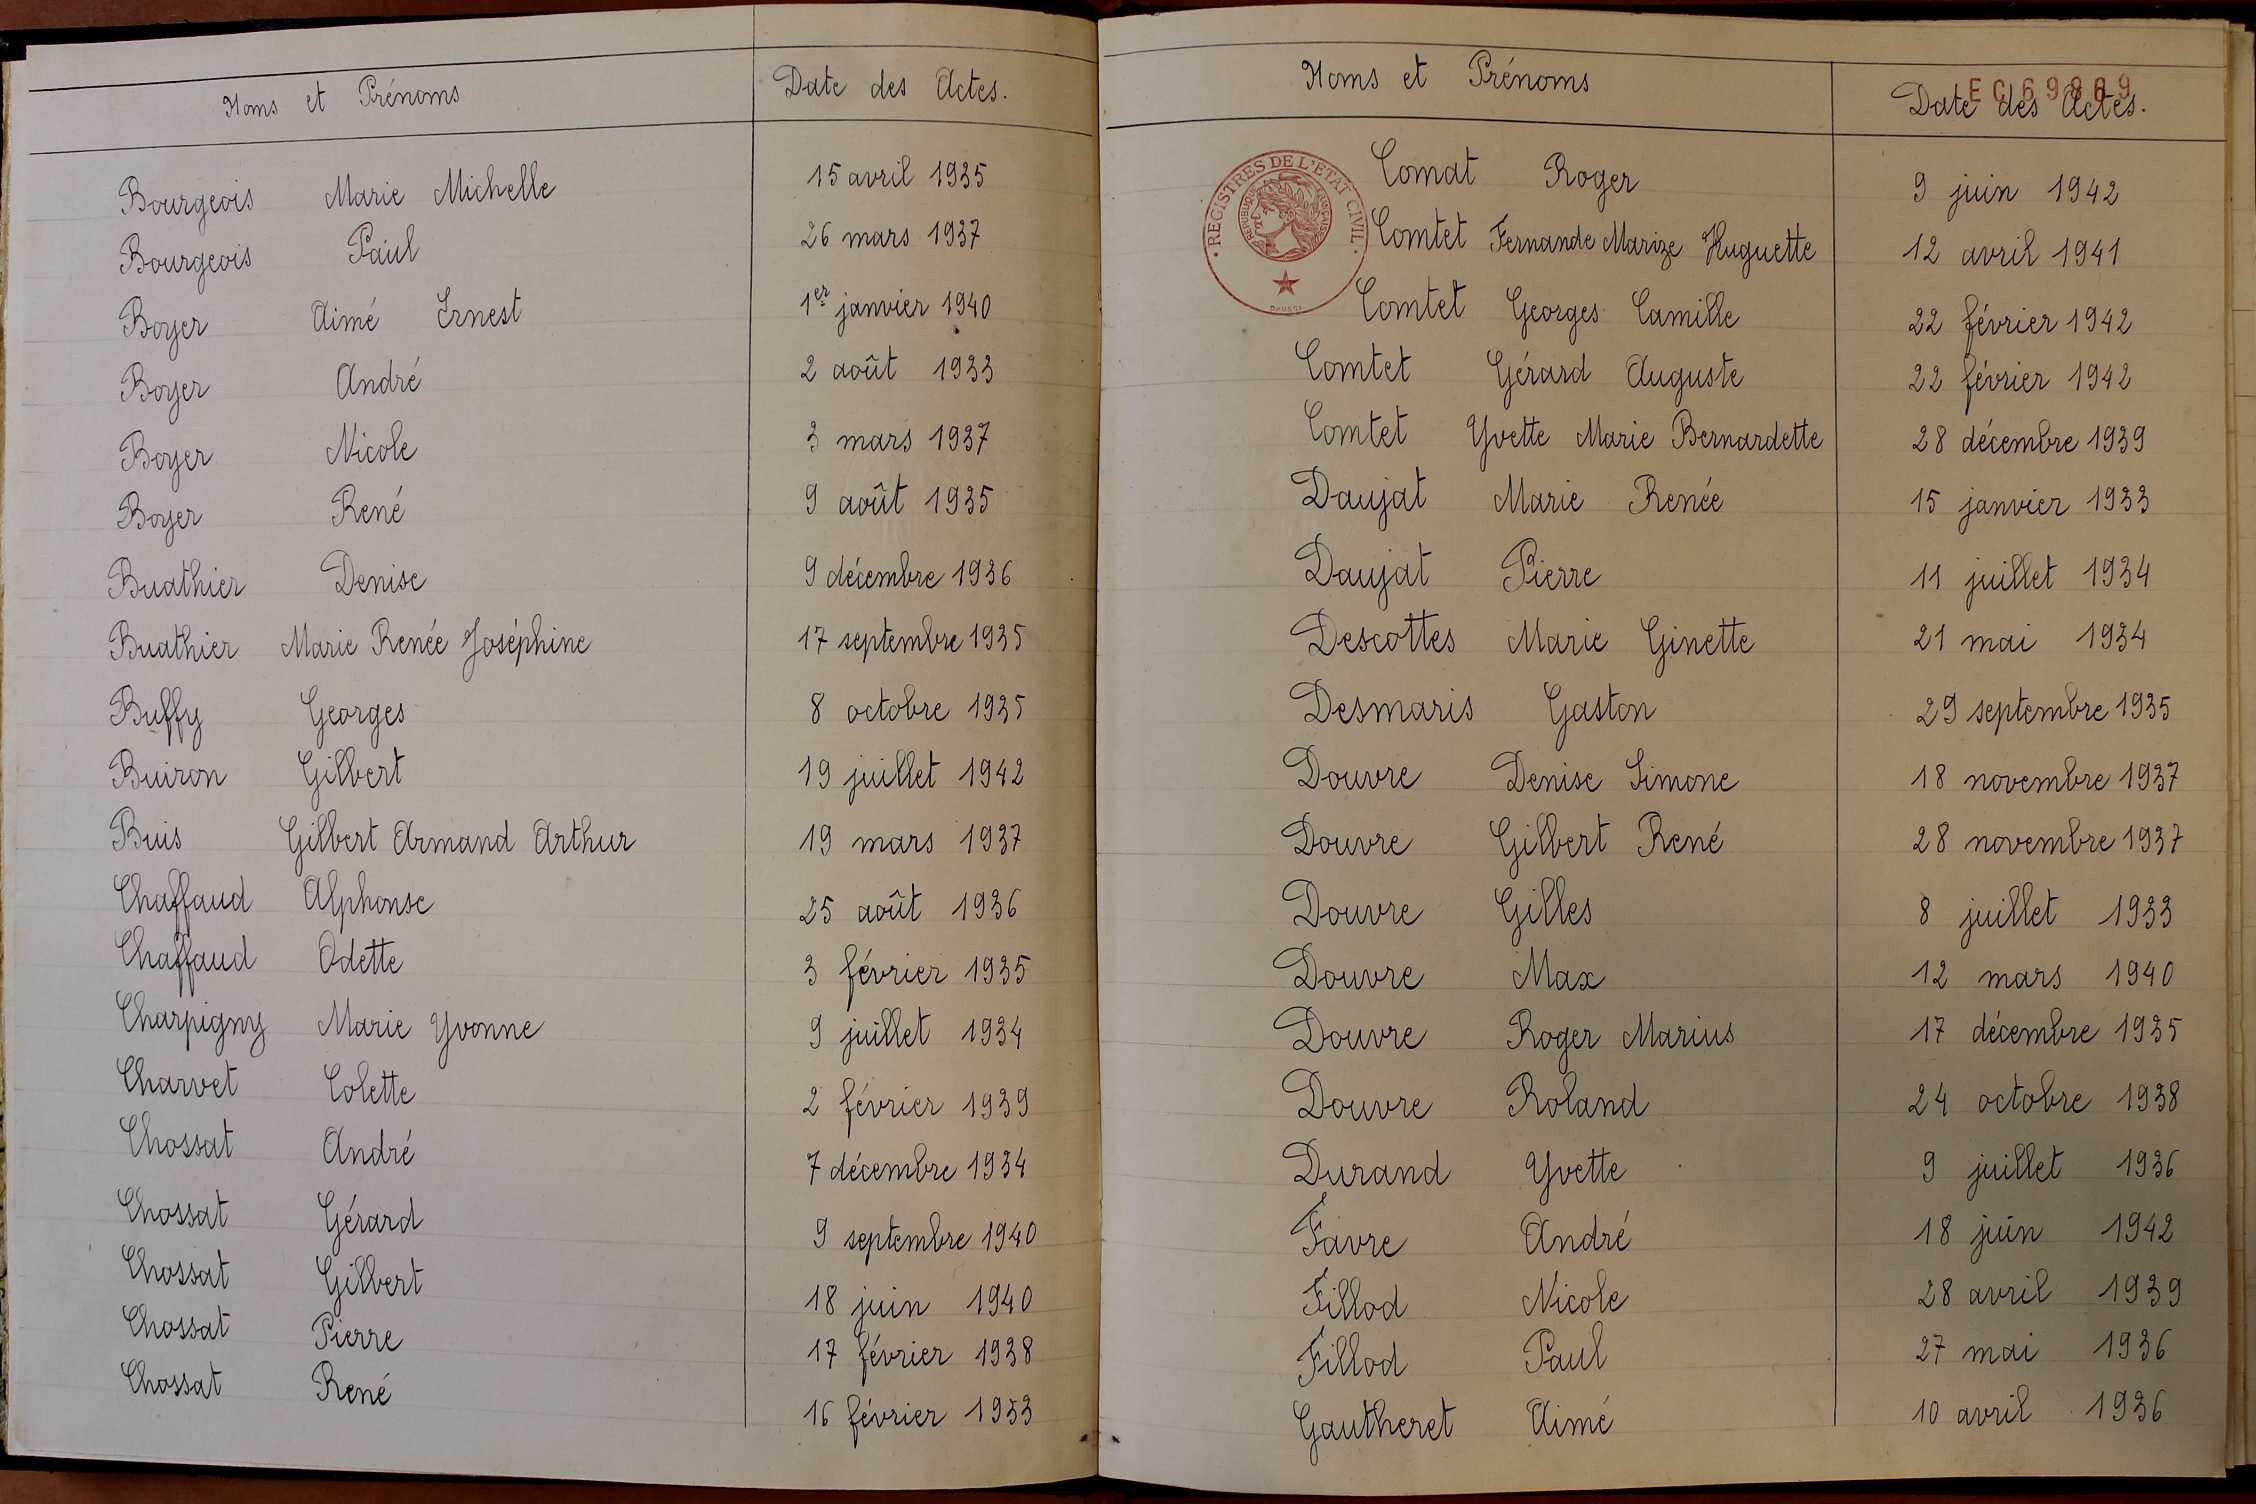 Noms et Prénoms Date des Actes.
Bourgeois Marie Michelle 15 avril 1935
Bourgeois Paul 26 mars 1937
Boyer Aimé Ernest 1er janvier 1940
Boyer André 2 août 1933
Boyer Nicole 3 mars 1937
Boyer René 9 août 1935
Buathier Denise 9 décembre 1936
Buathier Marie Renée Joséphine 17 septembre 1935
Buffy Georges 8 octobre 1935
Buiron Gilbert 19 juillet 1942
Buis Gilbert Armand Arthur 19 mars 1937
Chaffaud Alphonse 25 août 1936
Chaffaud Odette 3 février 1935
Charpigny Marie Yvonne 9 juillet 1934
Charvet Colette 2 février 1939
Chossat André 7 décembre 1934
Chossat Gérard 9 septembre 1940
Chossat Gilbert 18 juin 1940
Chossat Pierre 17 février 1938
Chossat René 16 février 1933
Noms et Prénoms Date des Actes.
EC69869
REGISTRES DE L'ETAT CIVIL
REPUBLIQUE FRANÇAISE
Comat Roger 9 juin 1942
Comtet Fernande Marize Huguette 12 avril 1941
Comtet Georges Camille 22 février 1942
Comtet Gérard Auguste 22 février 1942
Comtet Yvette Marie Bernardette 28 décembre 1939
Daujat Marie Renée 15 janvier 1933
Daujat Pierre 11 juillet 1934
Descottes Marie Ginette 21 mai 1934
Desmaris Gaston 29 septembre 1935
Douvre Denise Simone 18 novembre 1937
Douvre Gilbert René 28 novembre 1937
Douvre Gilles 8 juillet 1933
Douvre Max 12 mars 1940
Douvre Roger Marius 17 décembre 1935
Douvre Roland 24 octobre 1938
Durand Yvette 9 juillet 1936
Favre André 18 juin 1942
Fillod Nicole 28 avril 1939
Fillod Paul 27 mai 1936
Gautheret Aimé 10 avril 1936